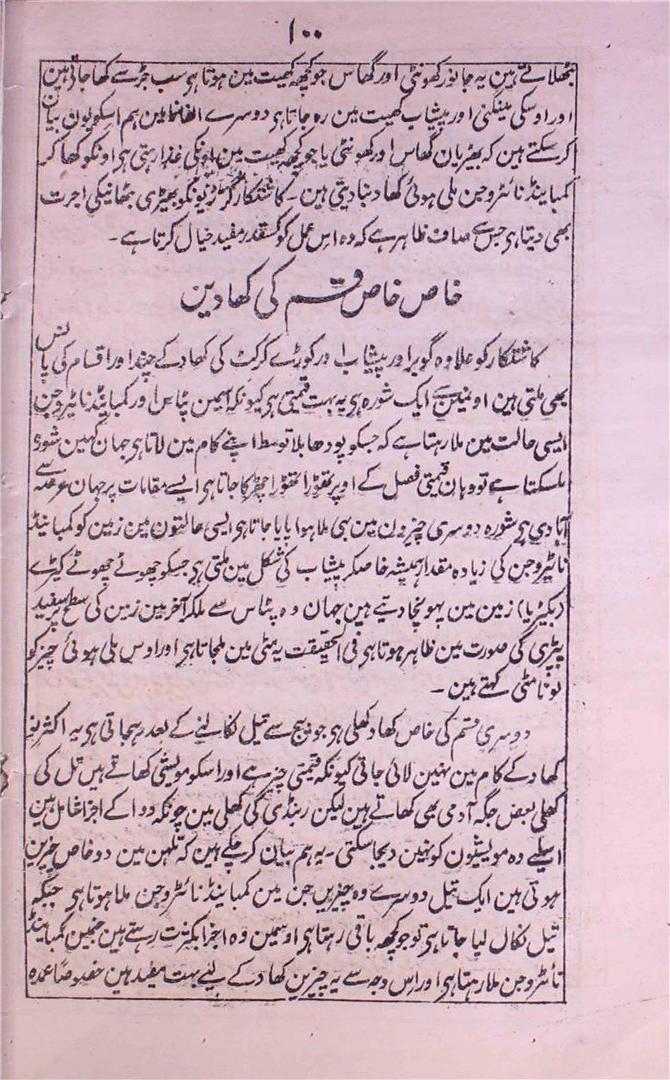 ۱۰۰
بٹھلاتے ہین یہ جانور کھونٹی اور گھاس جو کچھ کھیت مین ہوتا ہی سب جڑ سے کھا جاتی ہین
اور اوسکی مینگنی اور پیشاب کھیت مین رہ جاتا ہی دوسرے الفاظ مین ہم اسکو یون بیان
کر سکتے ہین کہ بھیڑیان گھاس اور کھونٹی یا جو کچھ کھیت مین اونکی غذا رہتی ہی اونکو کھا کر
کمبائینڈ نائٹروجن ملی ہوئی کھاد بنا دیتی ہین ۔ کاشتکار گڈریونکو بھیڑی بٹھانیکی اجرت
بھی دیتا ہی جس سے صاف ظاہر ہے کہ وہ اس عمل کو کسقدر مفید خیال کرتا ہے ۔
خاص خاص قسم کی کھادین
کاشتکار کو علاوہ گوبر اور پیشاب اور کوڑے کرکٹ کی کھاد کے چند اور اقسام کی پانس
بھی ملتی ہین اونمین سے ایک شورہ ہی یہ بہت قیمتی ہی کیونکہ اسمین پٹاس اور کمبائینڈ نائٹروجن
ایسی حالت مین ملا رہتا ہے کہ جسکو پودھا بلا توسط اپنے کام مین لاتا ہی جہان کہین شورہ
ملسکتا ہے تو وہان قیمتی فصل کے اوپر تھوڑا تھوڑا چھڑکا جاتا ہی ایسے مقامات پر جہان عرصہ سے
آبادی ہی شورہ دوسری چیزون مین بھی ملا ہوا پایا جاتا ہی ایسی حالتون مین زمین کو کمبائینڈ
نائٹروجن کی زیادہ مقدار ہمیشہ خاصکر پیشاب کی شکل مین ملتی ہی جسکو چھوٹے چھوٹے کیڑے
(بکٹریا) زمین مین پہونچا دیتے ہین جہان وہ پٹاس سے ملکر آخر مین زمین کی سطح پر سفید
پپڑی کی صورت مین ظاہر ہوتا ہی فی الحقیقت یہ مٹی مین ملجاتا ہی اور اوس ملی ہوئی چیز کو
لونا مٹی کہتے ہین ۔
دوسری قسم کی خاص کھاد کھلی ہی جو بیج سے تیل نکالنے کے بعد رہجاتی ہی یہ اکثر تو
کھاد کے کام مین نہین لائی جاتی کیونکہ قیمتی چیز ہے اور اسکو مویشی کھاتے ہین تل کی
کھلی بعض جگہ آدمی بھی کھاتے ہین لیکن رینڈی کی کھلی مین چونکہ دوا کے اجزا شامل ہین
اسلیے وہ مویشیون کو نہین دیجا سکتی ۔ یہ ہم بیان کر چکے ہین کہ تلہن مین دو خاص چیزین
ہوتی ہین ایک تیل دوسرے وہ چیزین جن مین کمبائینڈ نائٹروجن ملا ہوتا ہی جبکہ
تیل نکال لیا جاتا ہی تو جو کچھ باقی رہتا ہی اوسمین وہ اجزا بکثرت رہتے ہین جنمین کمبائینڈ
نائٹروجن ملا رہتا ہی اور اس وجہ سے یہ چیزین کھاد کے لیئے بہت مفید ہین خصوصًا عمدہ